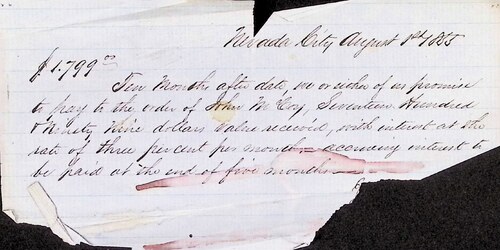 Nevada City August 1st 1855
$1.799 00
Ten Months after date, we or either of us promise
to pay to the order of John McCoy, Seventeen Hundred
& Ninety Nine dollars value received, with interest at the
rate of three percent per month – accruing interest to
be paid at the end of five months